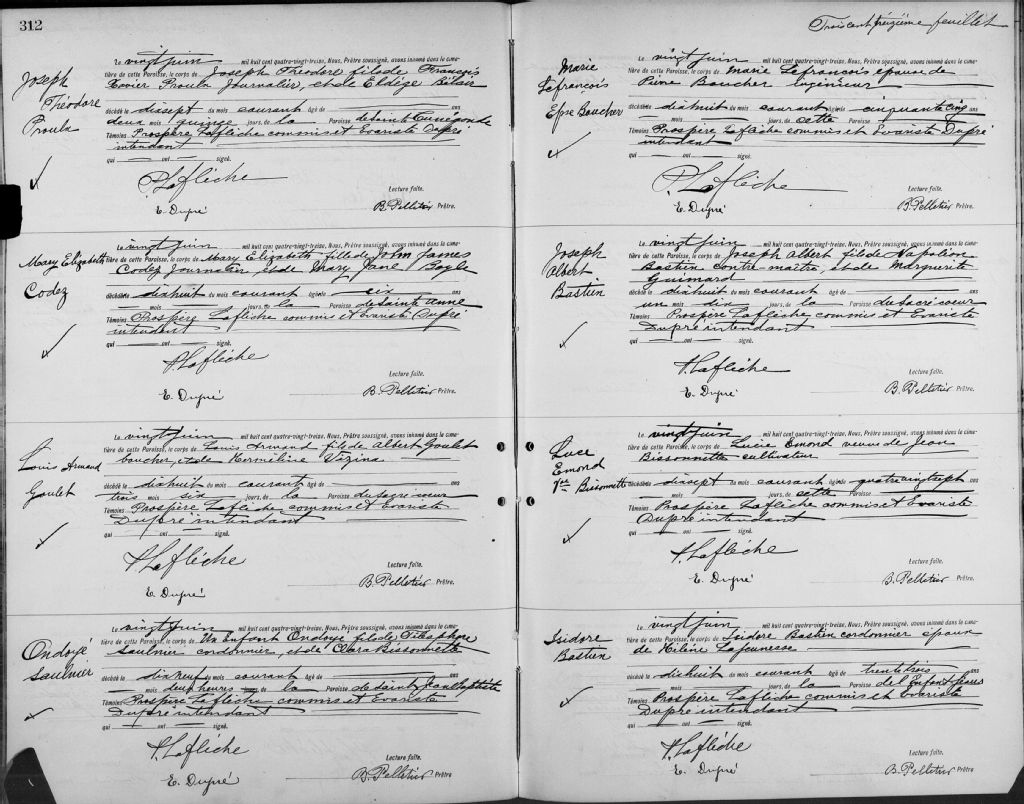 312
Joseph
Théodore
Proulx
Le vingt juin mil huit cent quatre-vingt-treize, Nous, Prêtre soussigné, avons inhumé dans le cime-
tière de cette Paroisse, le corps de Joseph Theodore fils de François
Xavier Proulx Journalier, et de Eldége Bélair
décédé le dixsept du mois courant âgé de ans
deux mois quinze jours, de la Paroisse de Sainte Cunégonde
Témoins Prospère Laflèche commis et Evariste Dupré
intendant
qui ont signé.
P. Laflèche
Lecture faite.
E. Dupré
B. Pelletier Prêtre.
Mary Elizabeth
Codez
Le vingt juin mil huit cent quatre-vingt-treize, Nous, Prêtre soussigné, avons inhumé dans le cime-
tière de cette Paroisse, le corps de Mary Elizabeth fille de John James
Codez Journalier, et de Mary Jane Boyle
décédée le dixhuit du mois courant âgée de six ans
mois jours, de la Paroisse de Sainte Anne
Témoins Prospère Laflèche commis et Evariste Dupré
intendant
qui ont signé.
P. Laflèche
Lecture faite.
E. Dupré
B. Pelletier Prêtre.
Louis Armand
Goulet
Le vingt juin mil huit cent quatre-vingt-treize, Nous, Prêtre soussigné, avons inhumé dans le cime-
tière de cette Paroisse, le corps de Louis Armand fils de Albert Goulet
boucher, et de Herméline Vézina
décédé le dixhuit du mois courant âgé de ans
trois mois six jours, de la Paroisse du Sacré coeur
Témoins Prospère Laflèche commis et Evariste
Dupré intendant
qui ont signé.
P. Laflèche
Lecture faite.
E. Dupré
B. Pelletier Prêtre.
Ondoyé
Saulnier
Le vingt juin mil huit cent quatre-vingt-treize, Nous, Prêtre soussigné, avons inhumé dans le cime-
tière de cette Paroisse, le corps de Un Enfant Ondoyé fils de Télesphore
Saulnier cordonnier, et de Clara Bissonnette
décédé le dixneuf du mois courant âgé de ans
mois deux heures de la Paroisse de Saint Jean Baptiste
Témoins Prospère Laflèche commis et Evariste
Dupré intendant
qui ont signé.
P. Laflèche
Lecture faite.
E. Dupré
B. Pelletier Prêtre.
Trois cent treizième feuillet
Marie
Lefrancois
Epse Boucher
Le vingt juin mil huit cent quatre-vingt-treize, Nous, Prêtre soussigné, avons inhumé dans le cime-
tière de cette Paroisse, le corps de Marie Lefrancois epouse de
Pierre Boucher Ingénieur
décédée le dixhuit du mois courant âgée de cinquante cinq ans
mois jours, de cette Paroisse
Témoins Prospère Laflèche commis et Evariste Dupré
intendant
qui ont signé.
P. Laflèche
Lecture faite.
E. Dupré
B. Pelletier Prêtre.
Joseph
Albert
Bastien
Le vingt juin mil huit cent quatre-vingt-treize, Nous, Prêtre soussigné, avons inhumé dans le cime-
tière de cette Paroisse, le corps de Joseph Albert fils de Napoléon
Bastien Contre-maître, et de Marguerite
Guimard
décédé le dixhuit du mois courant âgé de ans
un mois dix jours, de la Paroisse du Sacré coeur
Témoins Prospère Laflèche commis et Evariste
Dupré intendant
qui ont signé.
P. Laflèche
Lecture faite.
E. Dupré
B. Pelletier Prêtre.
Luce
Emond
Vve Bissonnette
Le vingt juin mil huit cent quatre-vingt-treize, Nous, Prêtre soussigné, avons inhumé dans le cime-
tière de cette Paroisse, le corps de Lucie Emond veuve de Jean
Bissonnette cultivateur
décédée le dixsept du mois courant âgée de quatrevingtsept ans
mois jours, de cette Paroisse
Témoins Prospère Laflèche commis et Evariste
Dupré intendant
qui ont signé.
P. Laflèche
Lecture faite.
E. Dupré
B. Pelletier Prêtre.
Isidore
Bastien
Le vingt juin mil huit cent quatre-vingt-treize, Nous, Prêtre soussigné, avons inhumé dans le cime-
tière de cette Paroisse, le corps de Isidore Bastien cordonnier epoux
de Hélène Lajeunesse
décédé le dixhuit du mois courant âgé de trente trois ans
mois jours, de Paroisse de l'Enfant Jésus
Témoins Prospère Laflèche commis et Evariste
Dupré intendant
qui ont signé.
P. Laflèche
Lecture faite.
E. Dupré
B. Pelletier Prêtre.